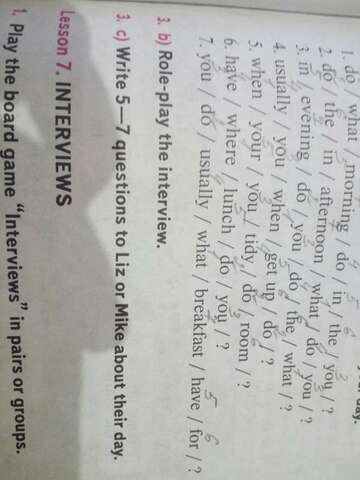 day.
1. do / what / morning / do / in / the / you / ?
2. do / the / in / afternoon / what / do / you / ?
3. in / evening / do / you / do / the / what / ?
4. usually / you / when / get up / do / ?
5. when / your / you / tidy / do / room / ?
6. have / where / lunch / do / you / ?
7. you / do / usually / what / breakfast / have / for / ?
3. b) Role-play the interview.
3. c) Write 5—7 questions to Liz or Mike about their day.
Lesson 7. INTERVIEWS
1. Play the board game “Interviews” in pairs or groups.